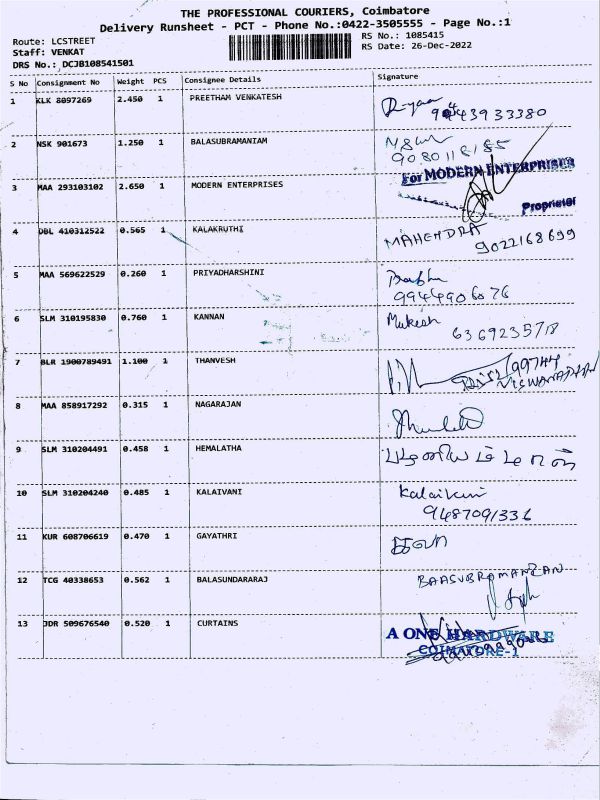 THE PROFESSIONAL COURIERS, Coimbatore
Delivery Runsheet - PCT - Phone No.:0422-3505555 - Page No.:1
Route: LCSTREET
RS No.: 1085415
Staff: VENKAT
RS Date: 26-Dec-2022
DRS No.: DCJB108541501
S No Consignment No Weight PCS Consignee Details Signature
1 KLK 8097269 2.450 1 PREETHAM VENKATESH
9443933380
2 NSK 901673 1.250 1 BALASUBRAMANIAM
9080118185
For MODERN ENTERPRISES
3 MAA 293103102 2.650 1 MODERN ENTERPRISES
Proprietor
4 DBL 410312522 0.565 1 KALAKRUTHI MAHENDRA
9022168699
5 MAA 569622529 0.260 1 PRIYADHARSHINI Prabhu
9944906076
6 SLM 310195830 0.760 1 KANNAN Mukesh
6369235718
7 BLR 1900789491 1.100 1 THANVESH
VISWANATHAN
8 MAA 858917292 0.315 1 NAGARAJAN
9 SLM 310204491 0.458 1 HEMALATHA
10 SLM 310204240 0.485 1 KALAIVANI Kalaivani
9487091336
11 KUR 608706619 0.470 1 GAYATHRI
12 TCG 40338653 0.562 1 BALASUNDARARAJ
13 JDR 509676540 0.520 1 CURTAINS A ONE HARDWARE
COIMBATORE-1